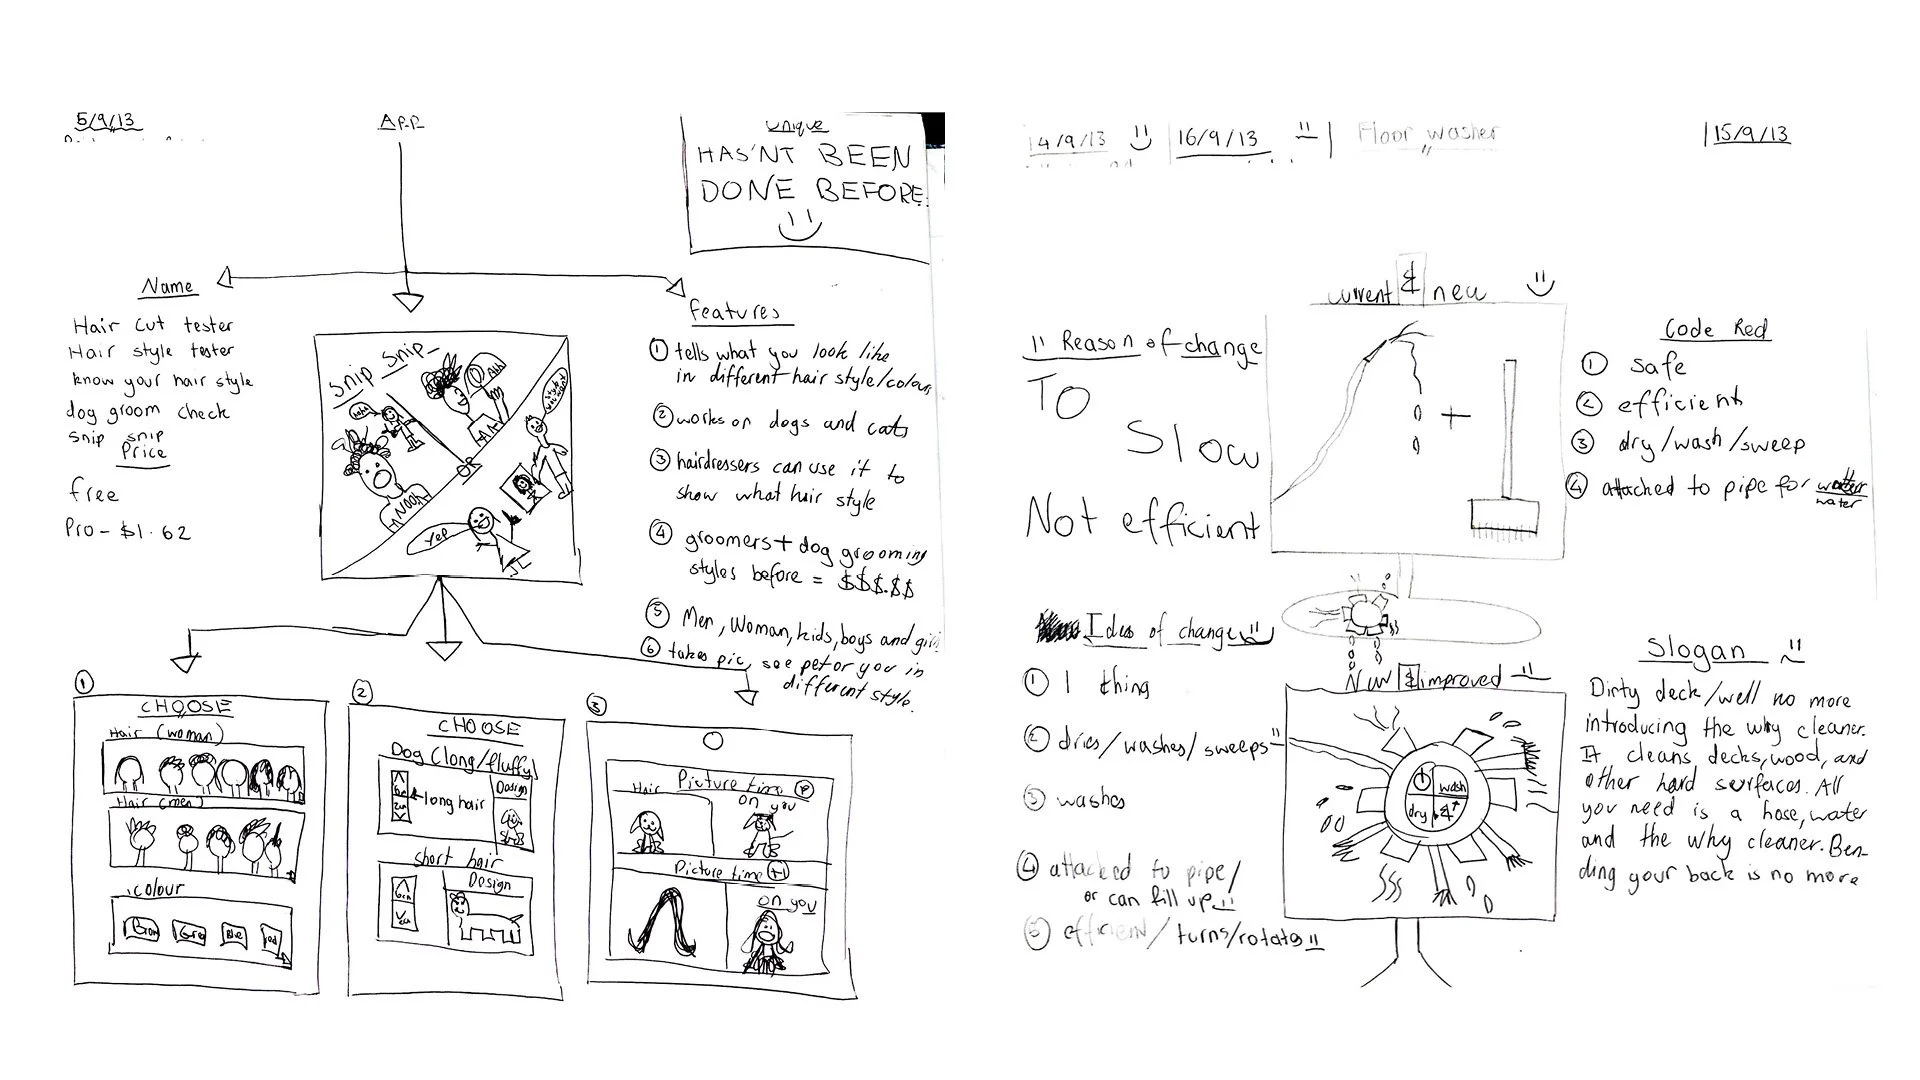 5/9/13
App
Unique
HAS'NT BEEN
DONE BEFORE.
Name
Hair cut tester
Hair style tester
know your hair style
dog groom check
snip snip
Price
free
Pro - $1.62
Snip Snip
haha
Ahh
NOOH
OR
Yep
Features
① tells what you look like
in different hair style/colours
② works on dogs and cats
③ hairdressers can use it to
show what hair style
④ groomers + dog grooming
styles before = $$$.$$
⑤ Men, woman, kids, boys and girls
⑥ takes pic, see pet or you in
different style.
①
CHOOSE
Hair (woman)
Hair (men)
colour
red
②
CHOOSE
Dog (long/fluffy)
long hair
Design
short hair
Design
③
Picture time
Hair
on you
Picture time
on you
14/9/13
16/9/13
Floor washer
15/9/13
current & new
Reason of change
TO
Slow
Not efficient
+
Code Red
① safe
② efficient
③ dry/wash/sweep
④ attached to pipe for
water
Ideas of change
① 1 thing
② dries/washes/sweeps
③ washes
④ attached to pipe/
or can fill up
⑤ efficient/turns/rotates
New & improved
wash
dry
Slogan
Dirty deck/well no more
introducing the why cleaner.
It cleans, decks, wood, and
other hard surfaces. All
you need is a hose, water
and the why cleaner. Ben-
ding your back is no more